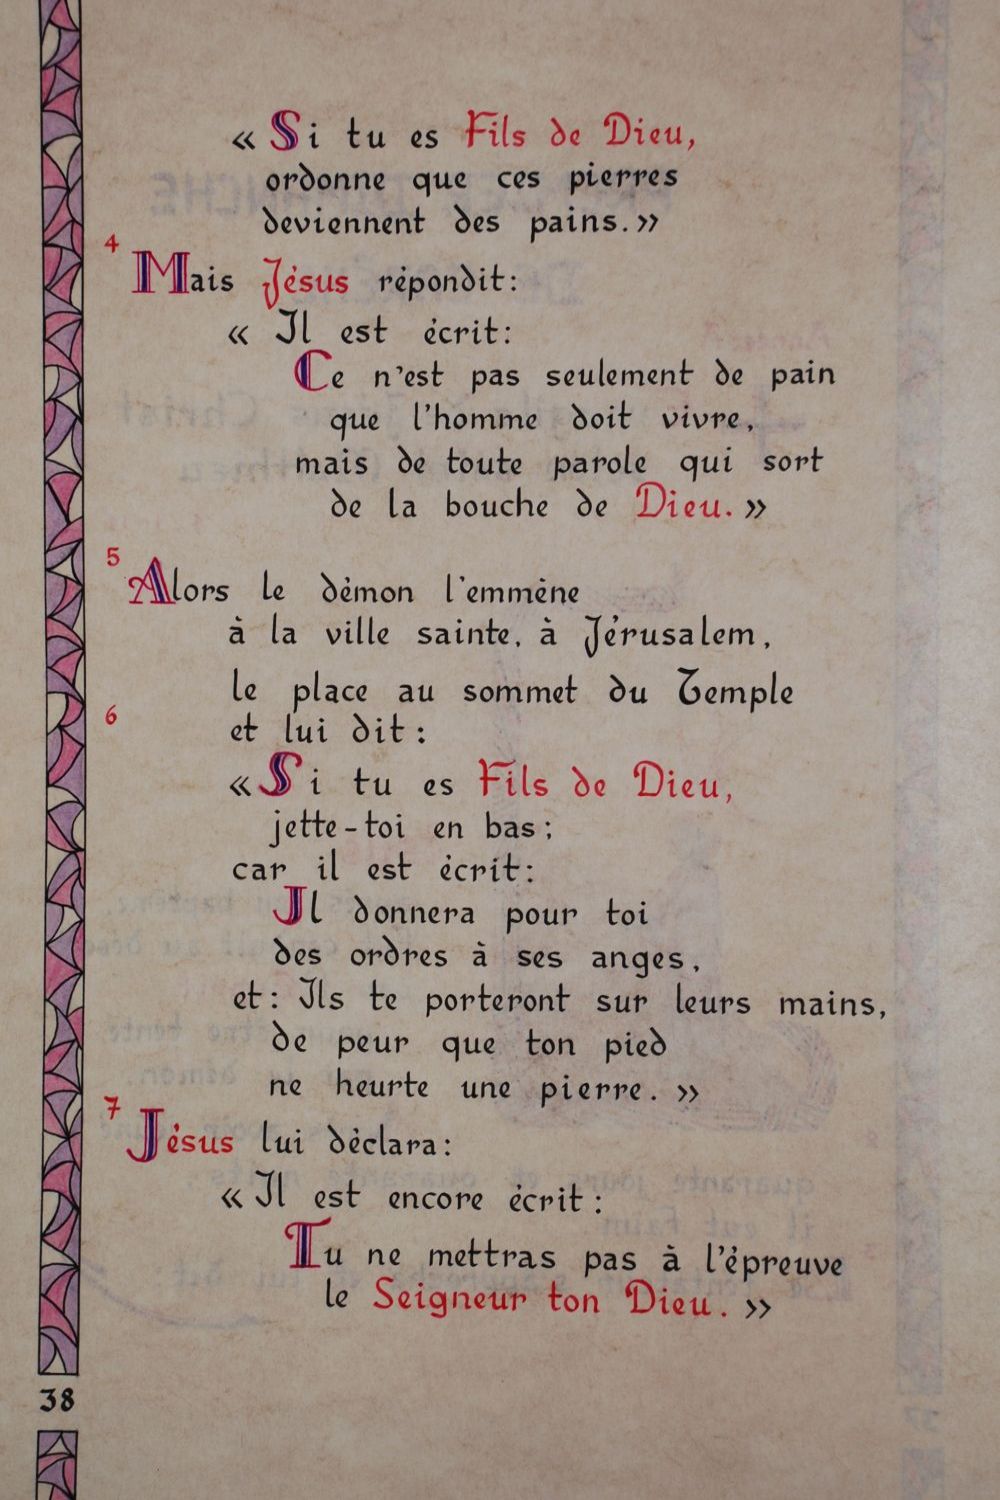 « Si tu es Fils de Dieu,
ordonne que ces pierres
deviennent des pains. »
4
Mais Jésus répondit:
« Il est écrit:
Ce n'est pas seulement de pain
que l'homme doit vivre,
mais de toute parole qui sort
de la bouche de Dieu. »
5
Alors le démon l'emmène
à la ville sainte, à Jérusalem,
le place au sommet du Temple
6
et lui dit:
« Si tu es Fils de Dieu,
jette-toi en bas;
car il est écrit:
Il donnera pour toi
des ordres à ses anges,
et: Ils te porteront sur leurs mains,
de peur que ton pied
ne heurte une pierre. »
7
Jésus lui déclara:
« Il est encore écrit:
Tu ne mettras pas à l'épreuve
le Seigneur ton Dieu. »
38